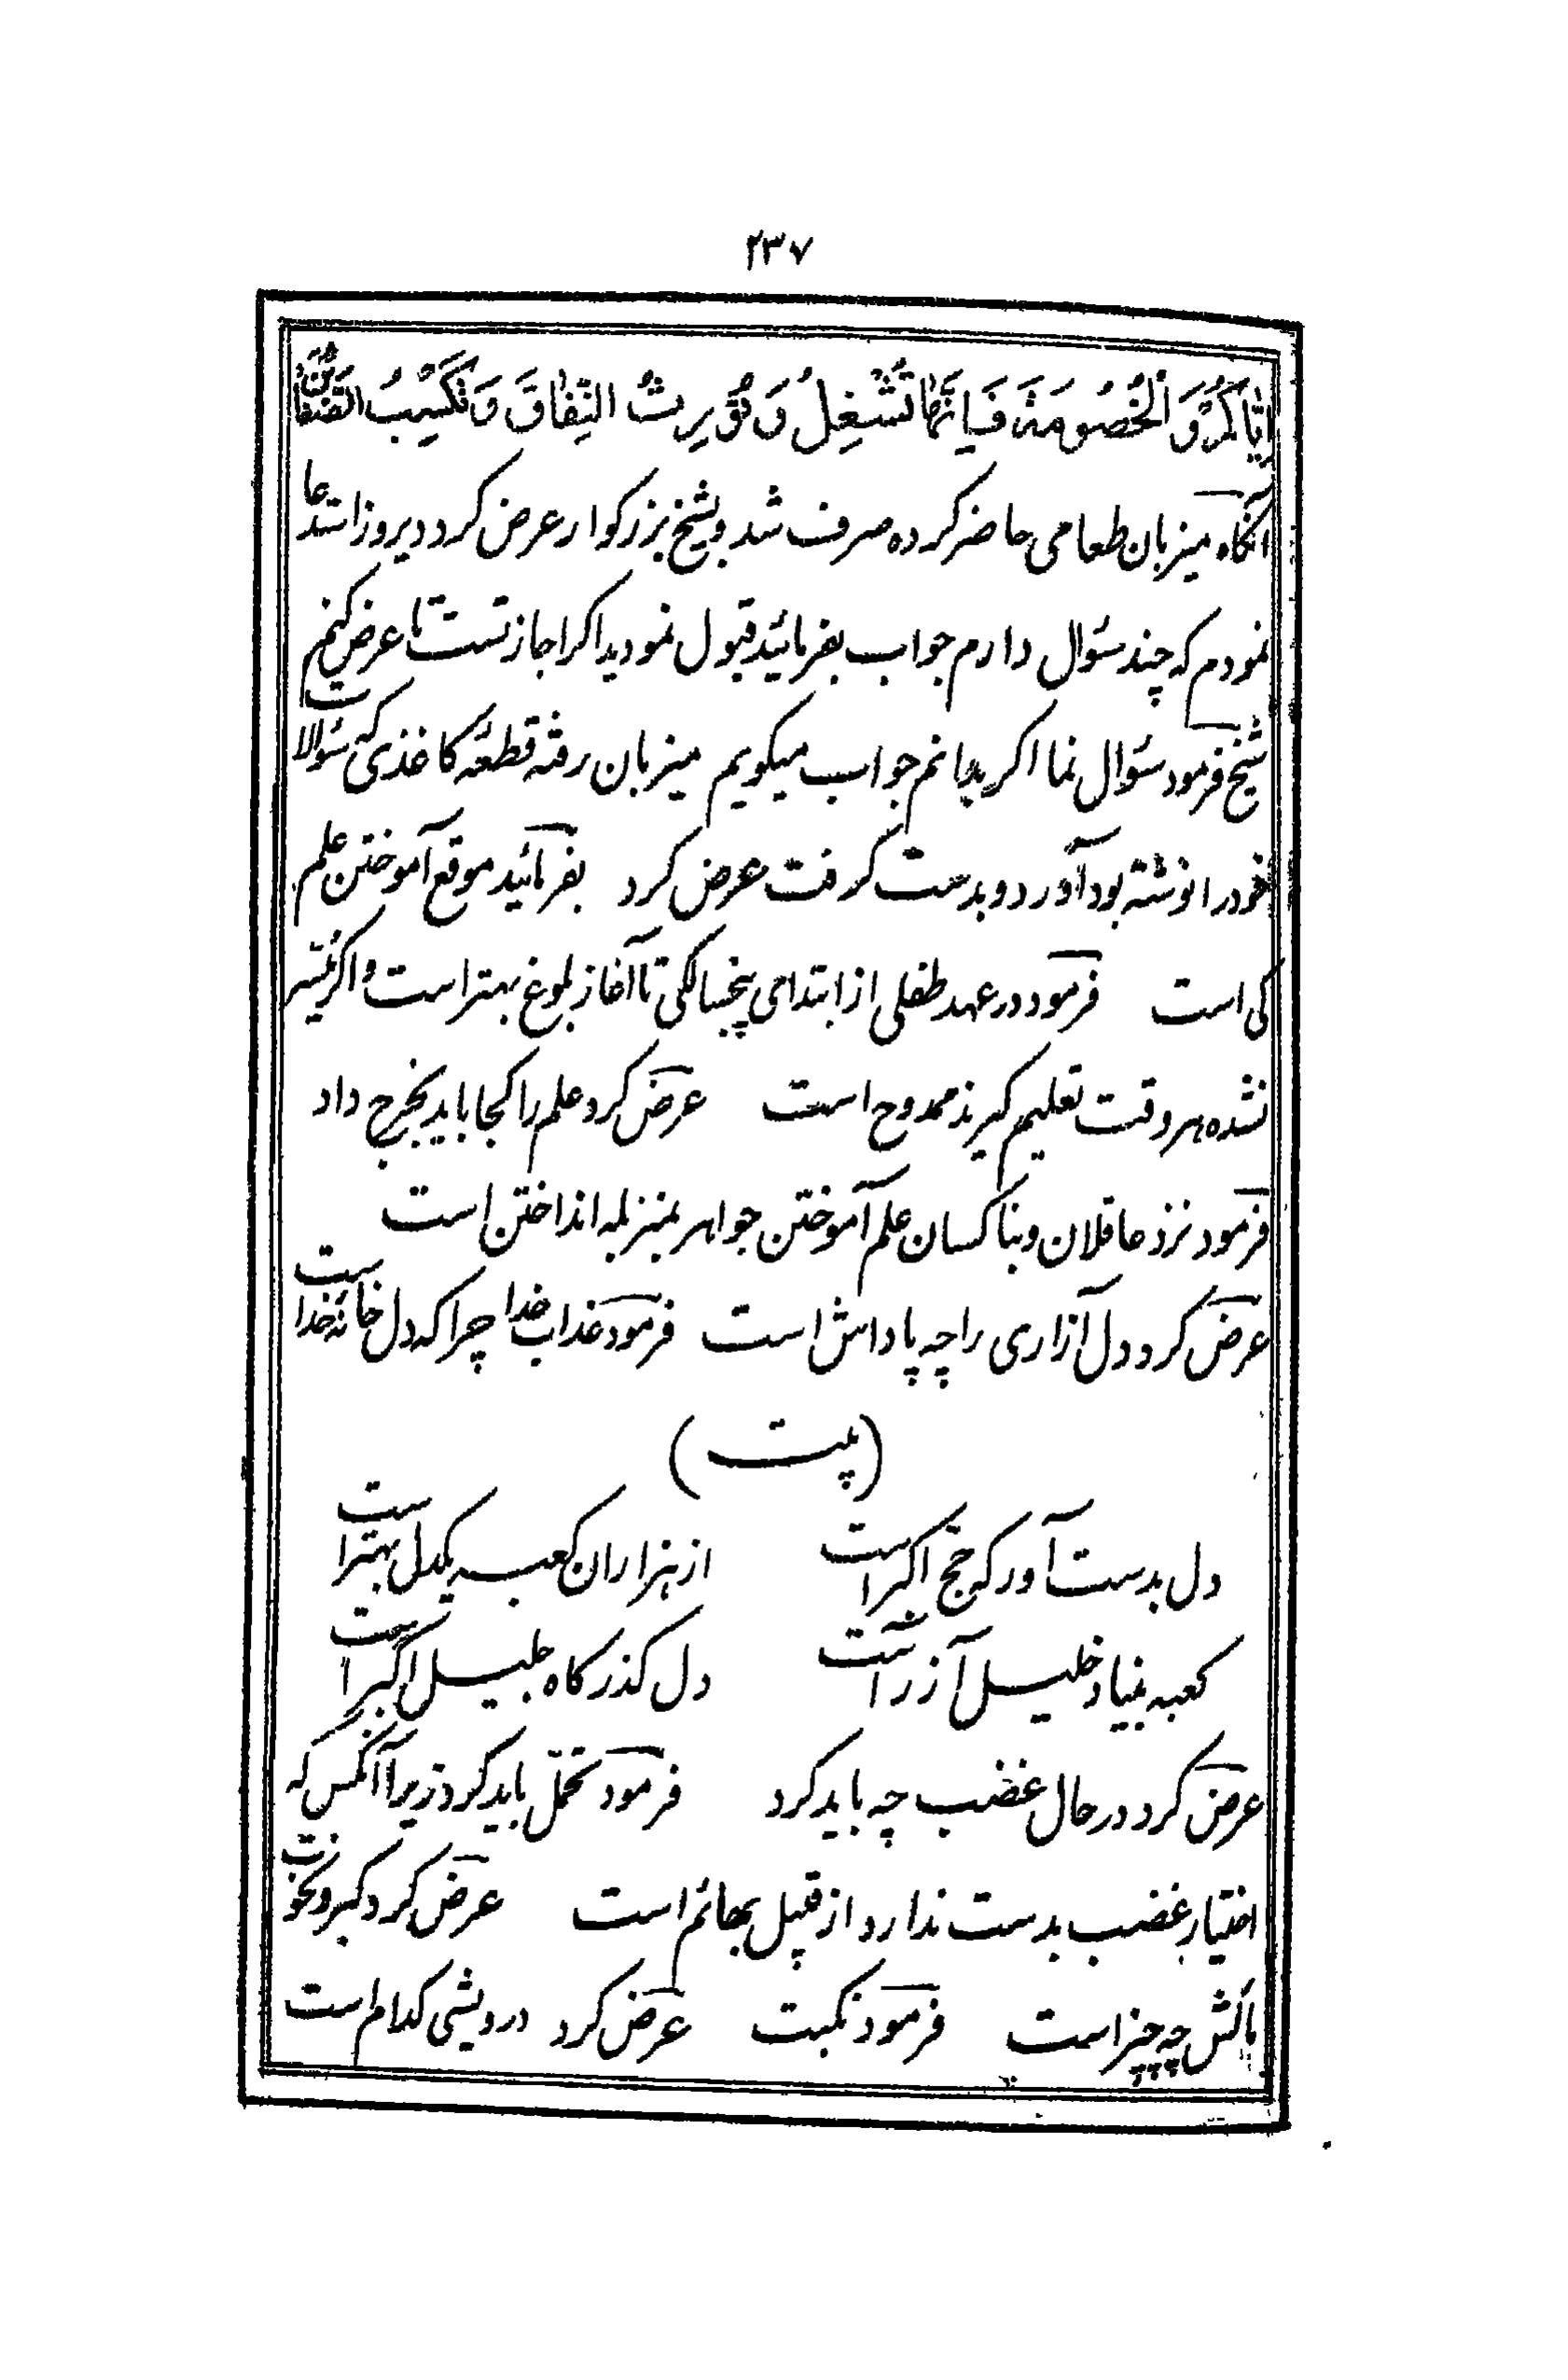 ۲۳۷
اِیّاکُمْ وَ الْخُصُومَةَ فَاِنَّهٰا تَشْغِلُ وَ تُوْرِثُ النِّفٰاقَ وَ تَکْسِبُ الضَّغٰائِنَ
آنگاه میزبان طعامی حاضر کرده صرف شد و بشیخ بزرگوار عرض کرد دیروز استدعا
نمودم که چند سئوال دارم جواب بفرمائید قبول نمودید اگر اجازتست تا عرض کنم
شیخ فرمود سئوال نما اگر بدانم جواب میگویم میزبان رفته قطعهٔ کاغذی که سئوالات
خود را نوشته بود آورد و بدست گرفت عرض کرد بفرمائید موقع آموختن علم
کی است فرمود در عهد طفلی از ابتدای پنجسالگی تا آغاز بلوغ بهتر است و اگر میسّر
نشده هر وقت تعلیم گیرند ممدوح است عرض کرد علم را کجا باید بخرج داد
فرمود نزد عاقلان و بناکسان علم آموختن جواهر بمزبله انداختن است
عرض کرد دل آزاری را چه پاداش است فرمود عذاب خدا چرا که دل خانهٔ خداست
(بیت)
دل بدست آور که حج اکبر است از هزاران کعبه یکدل بهتر است
کعبه بنیاد خلیل آزر است دل گذرگاه جلیل اکبر است
عرض کرد در حال غضب چه باید کرد فرمود تحمّل باید کرد زیرا آنکس که
اختیار غضب بدست ندارد از قبیل بهائم است عرض کرد کبر و نخوت
مآلش چه چیز است فرمود نکبت عرض کرد درویشی کدام است